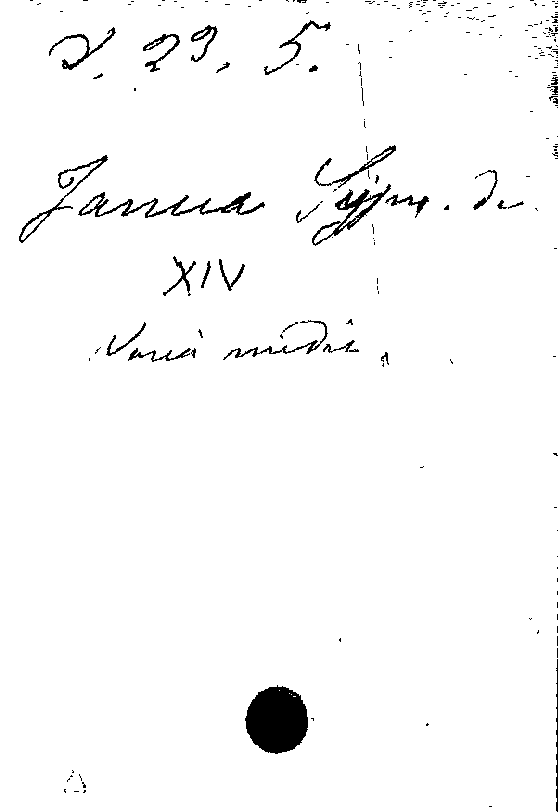 D. 23. 5.
Janua Sym. de
XIV
Varia medic.